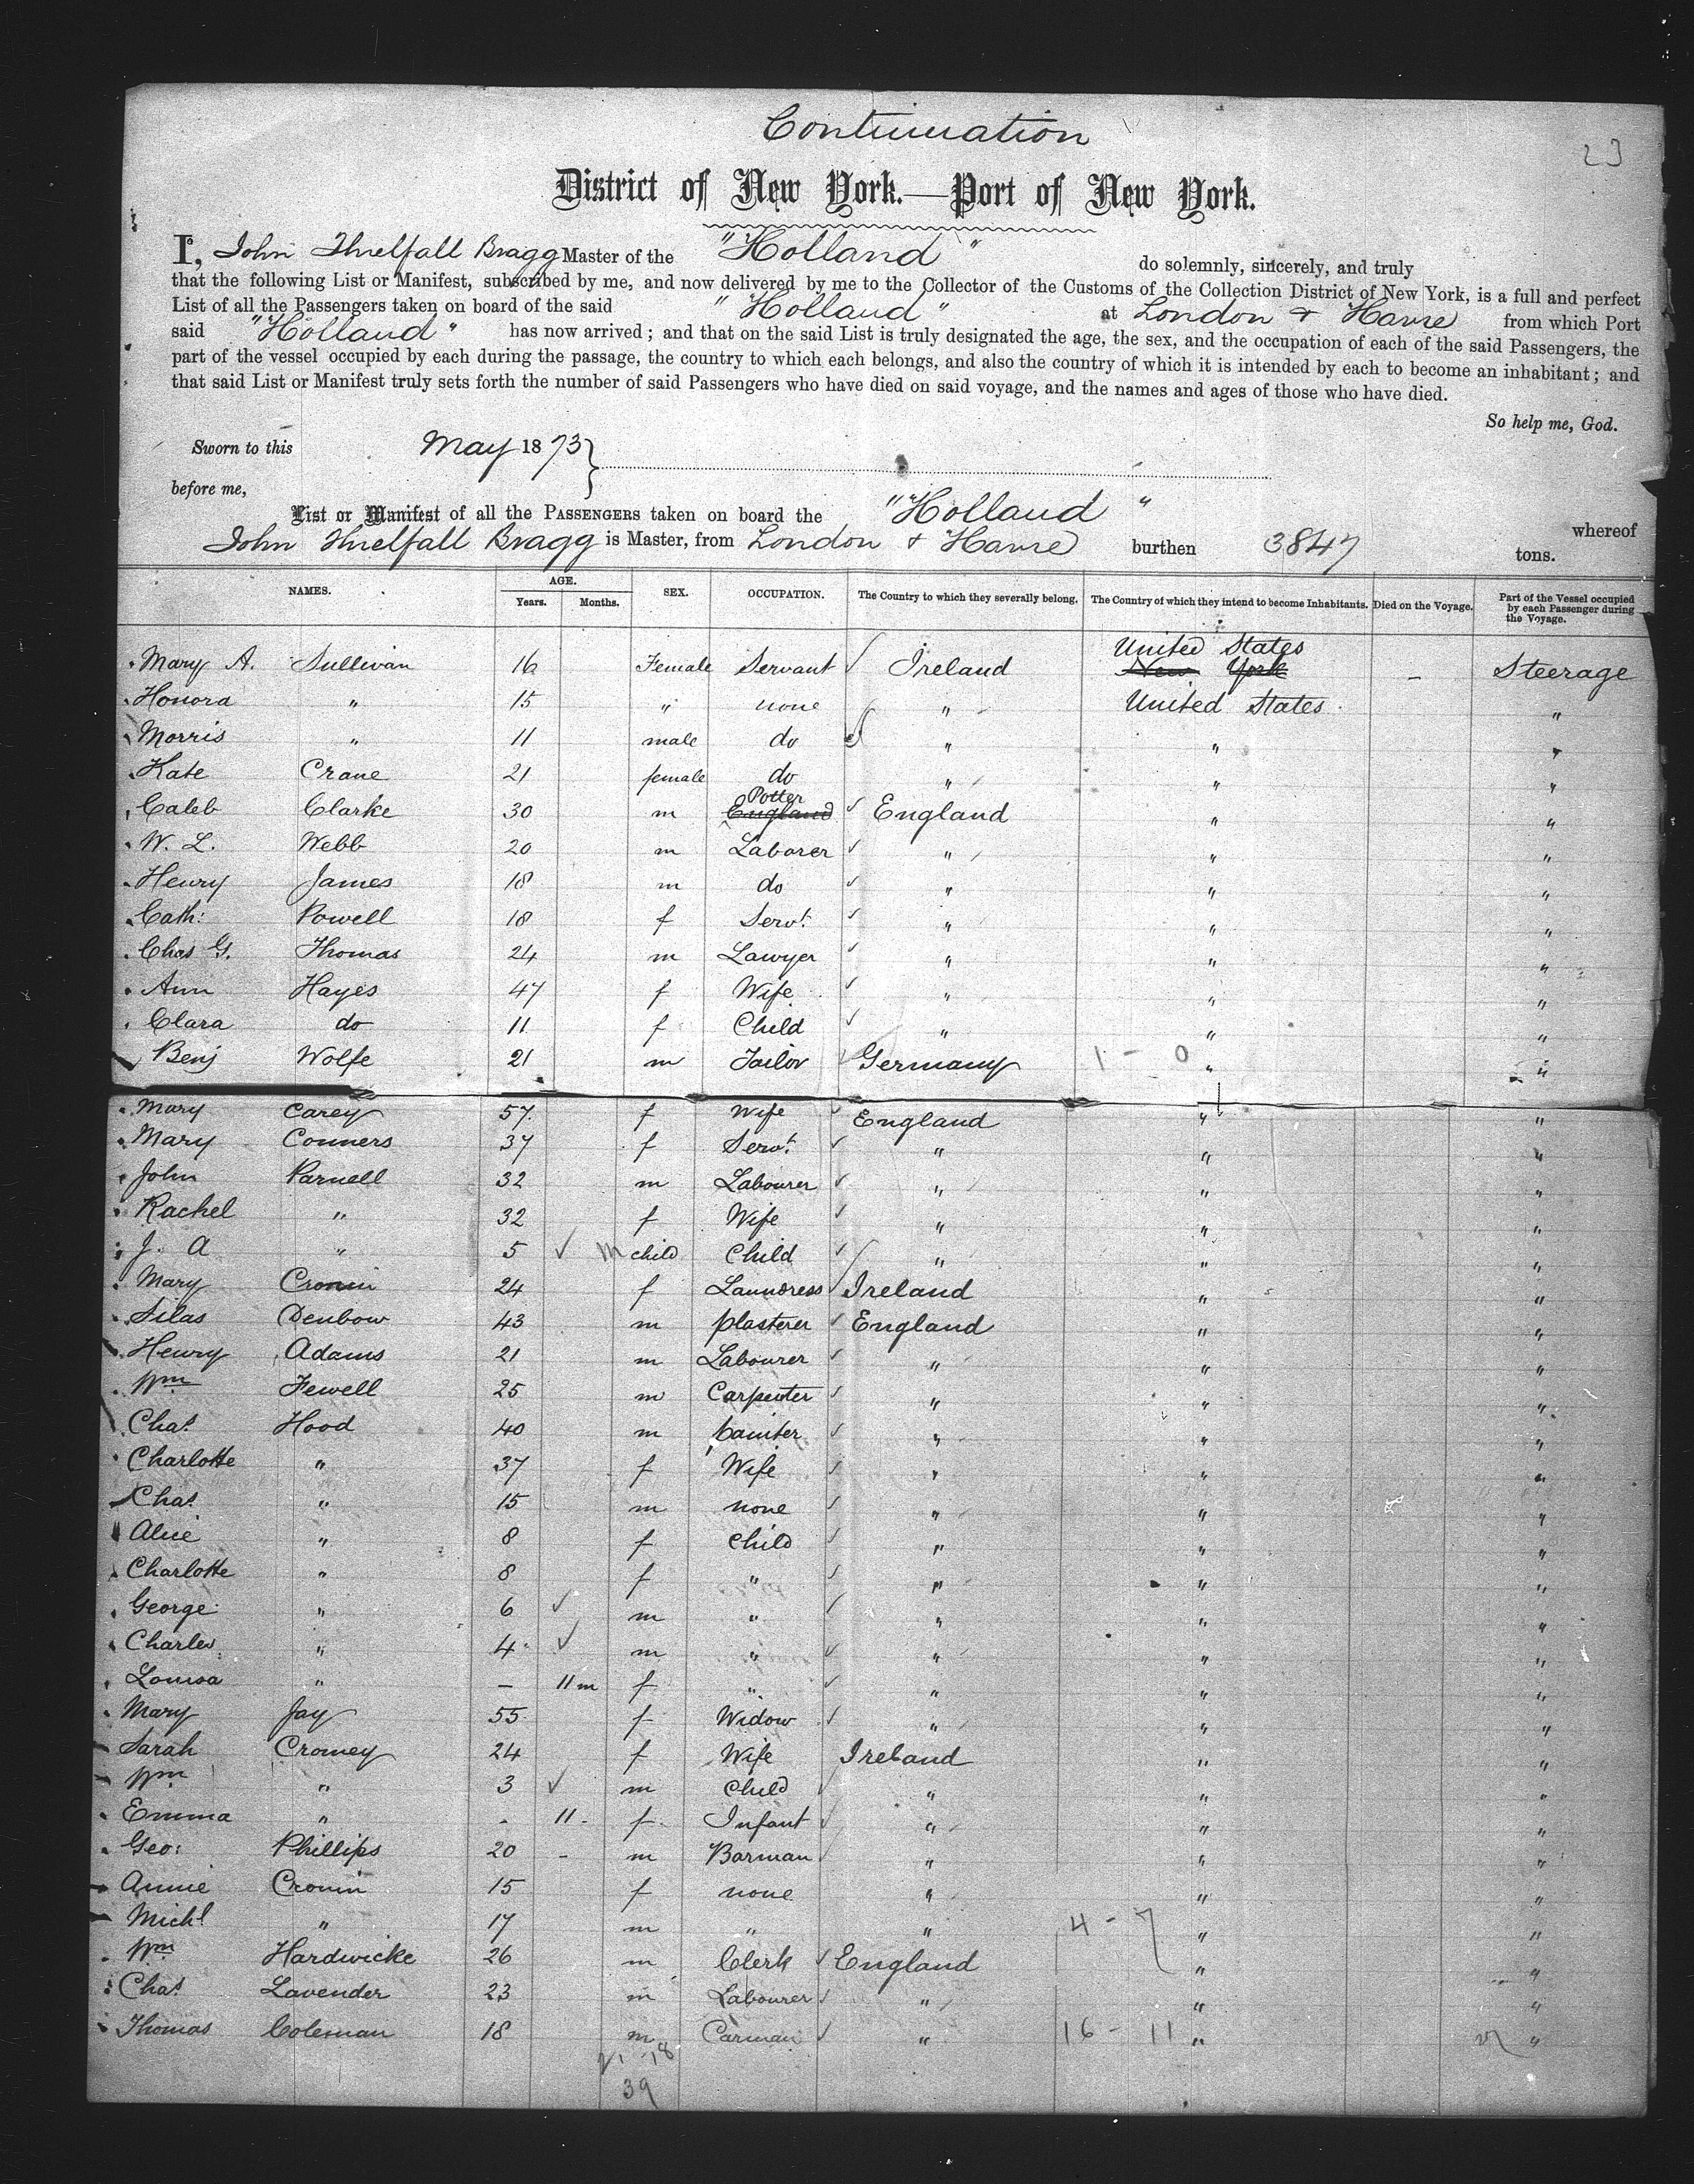 Continuation
23
District of New York.—Port of New York.
I, John Threlfall Bragg Master of the "Holland" do solemnly, sincerely, and truly
that the following List or Manifest, subscribed by me, and now delivered by me to the Collector of the Customs of the Collection District of New York, is a full and perfect
List of all the Passengers taken on board of the said "Holland" at London & Havre from which Port
said "Holland" has now arrived; and that on the said List is truly designated the age, the sex, and the occupation of each of the said Passengers, the
part of the vessel occupied by each during the passage, the country to which each belongs, and also the country of which it is intended by each to become an inhabitant; and
that said List or Manifest truly sets forth the number of said Passengers who have died on said voyage, and the names and ages of those who have died.
So help me, God.
Sworn to this May 1873
before me,
List or Manifest of all the PASSENGERS taken on board the "Holland" whereof
John Threlfall Bragg is Master, from London & Havre burthen 3847 tons.
NAMES. AGE. Years. Months. SEX. OCCUPATION. The Country to which they severally belong. The Country of which they intend to become Inhabitants. Died on the Voyage. Part of the Vessel occupied by each Passenger during the Voyage.
United States
Mary A. Sullivan 16 Female Servant Ireland New York - Steerage
Honora " 15 " none " United States "
Morris " 11 male do " " "
Kate Crane 21 female do " " "
Potter
Caleb Clarke 30 m England England " "
W. L. Webb 20 m Laborer " " "
Henry James 18 m do " " "
Cath: Powell 18 f Servt. " " "
Chas G. Thomas 24 m Lawyer " " "
Ann Hayes 47 f Wife " " "
Clara do 11 f Child " " "
Benj Wolfe 21 m Tailor Germany 1 - 0 " "
Mary Carey 57 f Wife England " "
Mary Conners 37 f Servt. " " "
John Parnell 32 m Labourer " " "
Rachel " 32 f Wife " " "
J. A " 5 m child Child " " "
Mary Cronin 24 f Laundress Ireland " "
Silas Denbow 43 m plasterer England " "
Henry Adams 21 m Labourer " " "
Wm Fewell 25 m Carpenter " " "
Chas. Hood 40 m painter " " "
Charlotte " 37 f Wife " " "
Chas. " 15 m none " " "
Alice " 8 f Child " " "
Charlotte " 8 f " " " "
George " 6 m " " " "
Charles " 4 m " " " "
Louisa " - 11 m f " " " "
Mary Jay 55 f Widow " " "
Sarah Cromey 24 f Wife Ireland " "
Wm " 3 m Child " " "
Emma " - 11 - f Infant " " "
Geo: Phillips 20 - m Barman " " "
Annie Cronin 15 f none " " "
Michl " 17 m " " 4 - 7 " "
Wm Hardwicke 26 m Clerk England " "
Chas. Lavender 23 m Labourer " " "
Thomas Coleman 18 m Carman " 16 - 11 " "
21 - 18
39